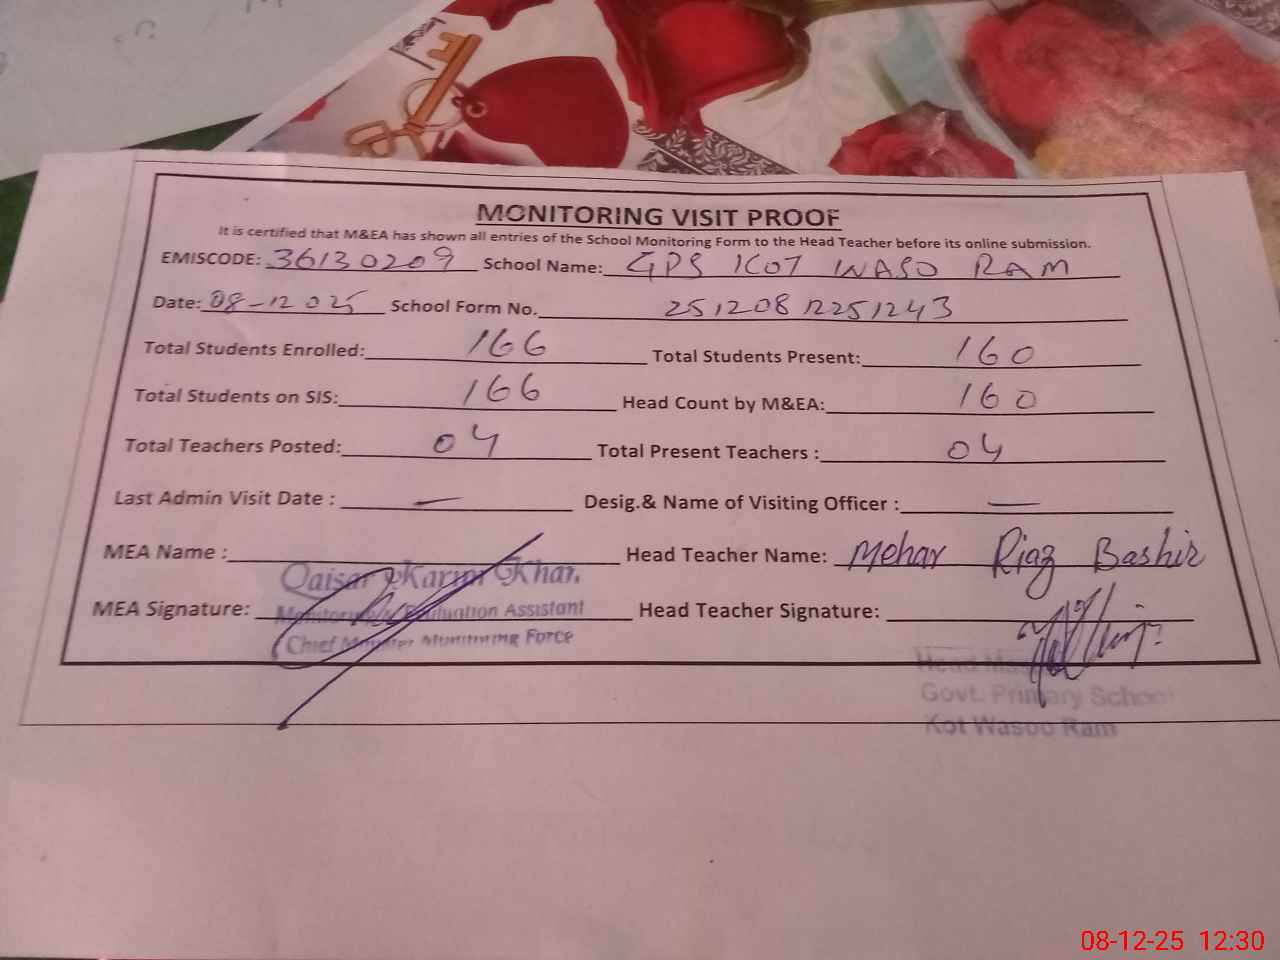 MONITORING VISIT PROOF
It is certified that M&EA has shown all entries of the School Monitoring Form to the Head Teacher before its online submission.
EMISCODE: 36130209 School Name: GPS KOT WASO RAM
Date: 08-12 025 School Form No. 251208 12251243
Total Students Enrolled: 166 Total Students Present: 160
Total Students on SIS: 166 Head Count by M&EA: 160
Total Teachers Posted: 04 Total Present Teachers : 04
Last Admin Visit Date : — Desig.& Name of Visiting Officer : —
MEA Name : Head Teacher Name: Mehar Riaz Bashir
Qaisar Karim Khan
MEA Signature: Head Teacher Signature:
Monitoring & Evaluation Assistant
Chief Minister Monitoring Force
Head
Govt. Primary School
Kot Wasoo Ram
08-12-25 12:30